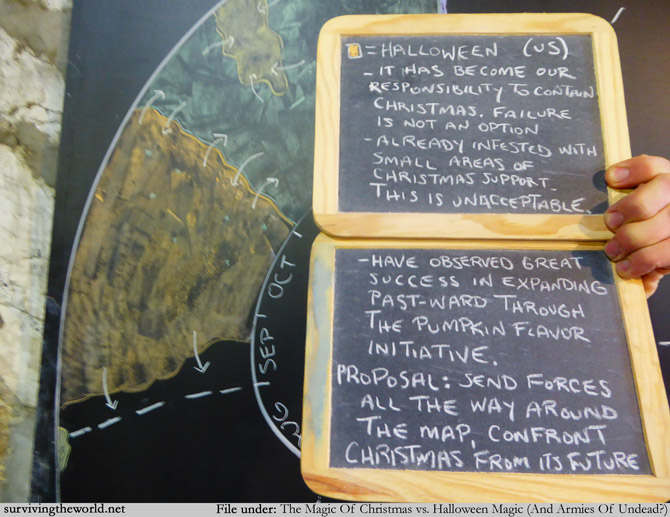 = HALLOWEEN (US)
- IT HAS BECOME OUR
RESPONSIBILITY TO CONTAIN
CHRISTMAS. FAILURE
IS NOT AN OPTION
- ALREADY INFESTED WITH
SMALL AREAS OF
CHRISTMAS SUPPORT-
THIS IS UNACCEPTABLE.
- HAVE OBSERVED GREAT
SUCCESS IN EXPANDING
PAST-WARD THROUGH
THE PUMPKIN FLAVOR
INITIATIVE.
PROPOSAL: SEND FORCES
ALL THE WAY AROUND
THE MAP, CONFRONT
CHRISTMAS FROM ITS FUTURE
OCT
SEP
survivingtheworld.net
File under: The Magic Of Christmas vs. Halloween Magic (And Armies Of Undead?)